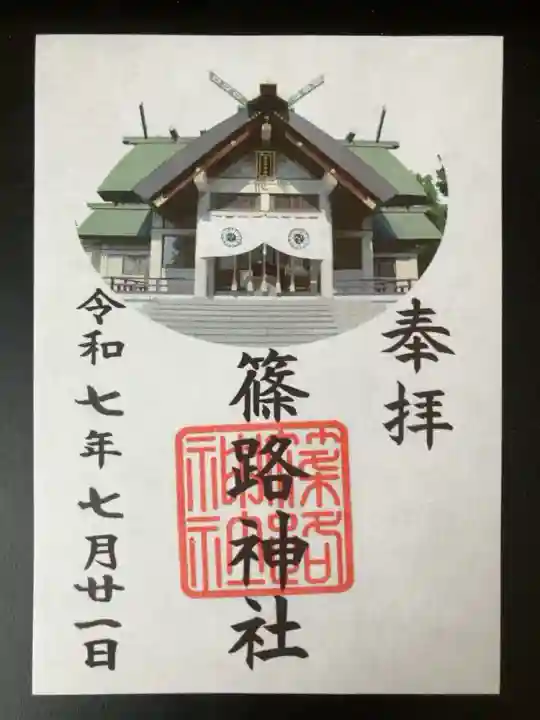 奉拝
篠路神社
篠路神社
令和七年七月廿一日